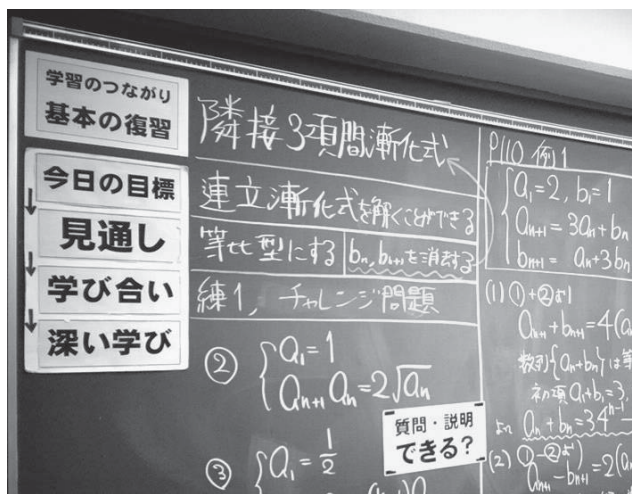 学習のつながり
基本の復習
今日の目標
見通し
学び合い
深い学び
隣接3項間漸化式
連立漸化式を解くことができる
等比型にする bₙ, bₙ₊₁を消去する
練1, チャレンジ問題
② { a₁=1
aₙ₊₁ aₙ=2√aₙ
③ { a₁=1/2
質問・説明
できる?
P110 例1
{ a₁=2, b₁=1
aₙ₊₁=3aₙ+bₙ
bₙ₊₁= aₙ+3bₙ
(1) ①+②より
aₙ₊₁+bₙ₊₁=4(a
数列{aₙ+bₙ}は等
初項a₁+b₁=3,
よって aₙ+bₙ=3·4ⁿ⁻¹
(2) ①-②より
aₙ₊₁-bₙ₊₁=2(a